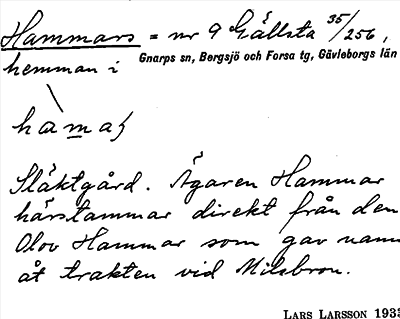 Hammars = nr 9 Gällsta 35/256,
hemman i Gnarps sn, Bergsjö och Forsa tg, Gävleborgs län
hama
Släktgård. Ägaren Hammar
härstammar direkt från den
Olov Hammar som gav namn
åt trakten vid Milsbron.
LARS LARSSON 1933